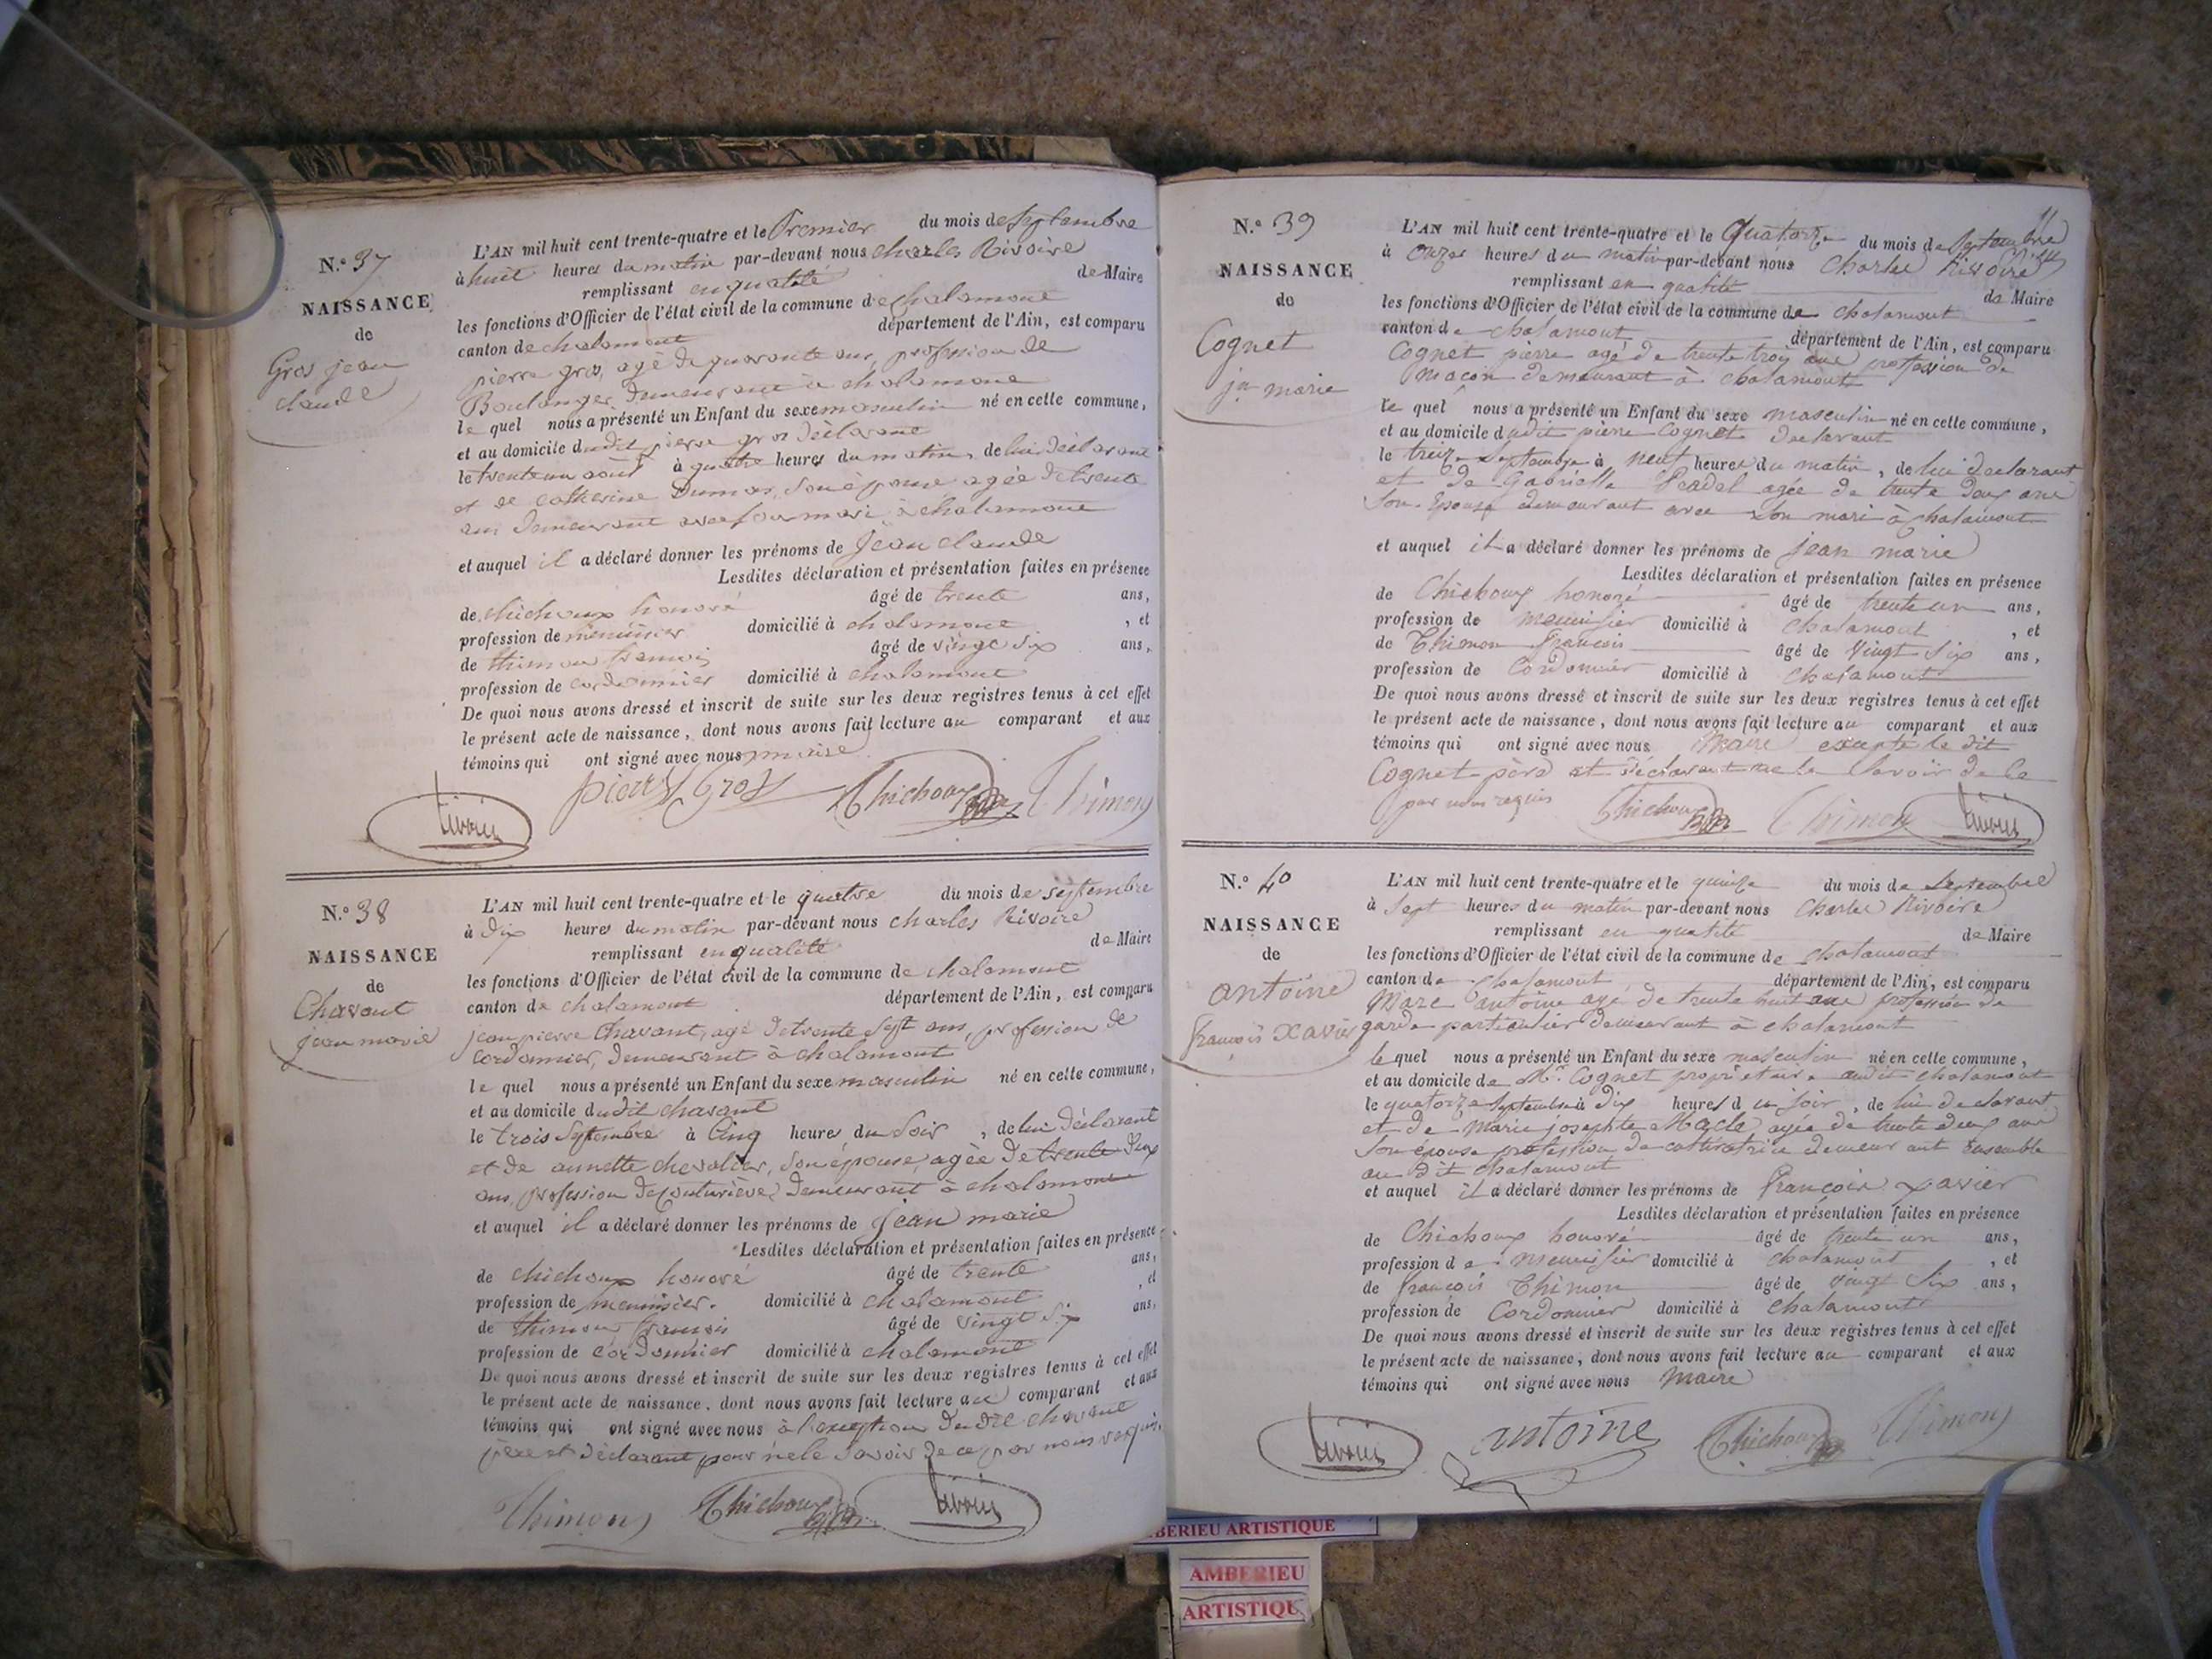 N.° 37
NAISSANCE
de
Gros jean
claude
L'AN mil huit cent trente-quatre et le Premier du mois de septembre
à huit heures du matin par-devant nous charles Rivoire
remplissant en qualité de Maire
les fonctions d'Officier de l'état civil de la commune de chalamont
canton de chalamont département de l'Ain, est comparu
pierre gros, agé de quarante ans, profession de
Boulanger, demeurant à chalamont
le quel nous a présenté un Enfant du sexe masculin né en cette commune,
et au domicile dudit pierre gros déclarant
le trente un août à quatre heures du matin, de lui déclarant
et de catherine Dumas, son épouse agée de trente
ans demeurant avec son mari à chalamont
et auquel il a déclaré donner les prénoms de jean claude
Lesdites déclaration et présentation faites en présence
de chichoux honoré âgé de trente ans,
profession de menuisier domicilié à chalamont , et
de thimon francois âgé de vingt six ans,
profession de cordonnier domicilié à chalamont
De quoi nous avons dressé et inscrit de suite sur les deux registres tenus à cet effet
le présent acte de naissance, dont nous avons fait lecture au comparant et aux
témoins qui ont signé avec nous maire
pierre Gros Chichoux Thimon
Rivoire
N.° 38
NAISSANCE
de
Chavant
jean marie
L'AN mil huit cent trente-quatre et le quatre du mois de septembre
à dix heures du matin par-devant nous charles Rivoire
remplissant en qualité de Maire
les fonctions d'Officier de l'état civil de la commune de chalamont
canton de chalamont département de l'Ain, est comparu
jean pierre Chavant, agé de trente sept ans, profession de
cordonnier, demeurant à chalamont
le quel nous a présenté un Enfant du sexe masculin né en cette commune,
et au domicile dudit chavant
le trois septembre à Cinq heures du soir, de lui déclarant
et de annette chevalier, son épouse, agée de trente deux
ans, profession de couturière, demeurant à chalamont
et auquel il a déclaré donner les prénoms de jean marie
Lesdites déclaration et présentation faites en présence
de chichoux honoré âgé de trente ans,
profession de menuisier. domicilié à chalamont , et
de thimon francois âgé de vingt six ans,
profession de cordonnier domicilié à chalamont
De quoi nous avons dressé et inscrit de suite sur les deux registres tenus à cet effet
le présent acte de naissance, dont nous avons fait lecture au comparant et aux
témoins qui ont signé avec nous à l'exception dudit chavant
père et déclarant pour ne le savoir de ce par nous requis.
Thimon Chichoux Rivoire
N.° 39
NAISSANCE
de
Cognet
jn marie
L'AN mil huit cent trente-quatre et le Quatorze du mois de septembre
à onze heures du matin par-devant nous Charles Rivoire
remplissant en qualité de Maire
les fonctions d'Officier de l'état civil de la commune de chalamont
canton de chalamont département de l'Ain, est comparu
Cognet pierre agé de trente trois ans profession de
maçon demeurant à chalamont
le quel nous a présenté un Enfant du sexe masculin né en cette commune,
et au domicile dudit pierre Cognet declarant
le treize septembre à neuf heures du matin, de lui declarant
et de Gabrielle agée de trente deux ans
son Epouse demeurant avec son mari à chalamont
et auquel il a déclaré donner les prénoms de jean marie
Lesdites déclaration et présentation faites en présence
de Chichoux honoré âgé de trente un ans,
profession de menuisier domicilié à chalamont , et
de Thimon françois âgé de vingt six ans,
profession de Cordonnier domicilié à chalamont
De quoi nous avons dressé et inscrit de suite sur les deux registres tenus à cet effet
le présent acte de naissance, dont nous avons fait lecture au comparant et aux
témoins qui ont signé avec nous Maire excepté le dit
Cognet père et déclarant ne le savoir de ce
par nous requis Chichoux Thimon Rivoire
N.° 40
NAISSANCE
de
antoine
françois Xavier
L'AN mil huit cent trente-quatre et le quinze du mois de septembre
à sept heures du matin par-devant nous Charles Rivoire
remplissant en qualité de Maire
les fonctions d'Officier de l'état civil de la commune de chalamont
canton de chalamont département de l'Ain, est comparu
Marc antoine agé de trente huit ans profession de
garde particulier demeurant à chalamont
le quel nous a présenté un Enfant du sexe masculin né en cette commune,
et au domicile de Mr. Cognet propriétaire audit chalamont
le quatorze septembre à dix heures du soir, de lui declarant
et de Marie josephte Macle agée de trente deux ans
son épouse profession de cultivatrice demeurant Ensemble
au dit chalamont
et auquel il a déclaré donner les prénoms de françois xavier
Lesdites déclaration et présentation faites en présence
de Chichoux honoré âgé de trente un ans,
profession de menuisier domicilié à chalamont , et
de françois Thimon âgé de vingt six ans,
profession de Cordonnier domicilié à chalamont
De quoi nous avons dressé et inscrit de suite sur les deux registres tenus à cet effet
le présent acte de naissance, dont nous avons fait lecture au comparant et aux
témoins qui ont signé avec nous Maire
Rivoire antoine Chichoux Thimon
BERIEU ARTISTIQUE
AMBERIEU
ARTISTIQU